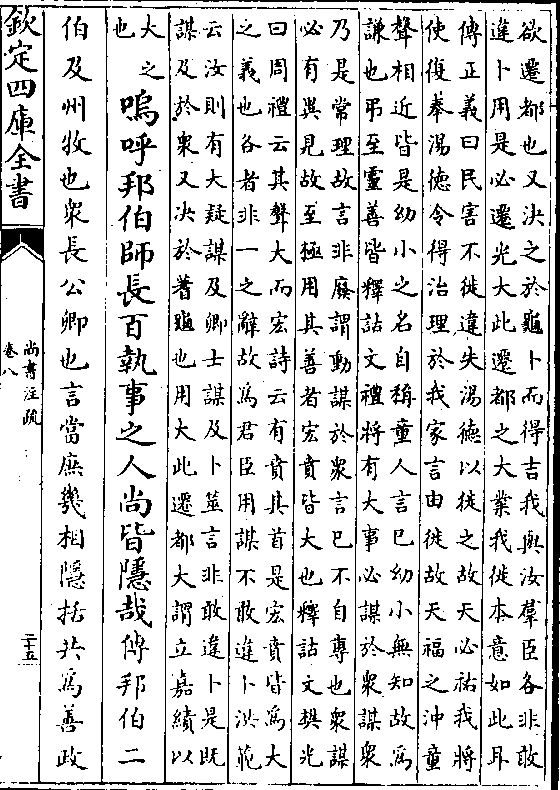 欲遷都也又決之於龜卜而得吉我與汝羣臣各非敢
違卜用是必遷光大此遷都之大業我徙本意如此耳
傳正義曰民害不徙違失湯德以徙之故天必祐我將
使復奉湯德令得治理於我家言由徙故天福之沖童
聲相近皆是幼小之名自稱童人言已幼小無知故為
謙也弔至靈善皆釋詁文禮將有大事必謀於衆謀衆
乃是常理故言非廢謂動謀於衆言已不自專也衆謀
必有異見故至極用其善者宏賁皆大也釋詁文樊光
曰周禮云其聲大而宏詩云有賁其首是宏賁皆為大
之義也各者非一之辭故為君臣用謀不敢違卜洪範
云汝則有大疑謀及卿士謀及卜筮言非敢違卜是既
謀及於衆又決於蓍龜也用大此遷都大謂立嘉績以
大之
也
嗚呼邦伯師長百執事之人尚皆隱哉傳邦伯二
伯及州牧也衆長公卿也言當庶幾相隱括共為善政
欽定四庫全書
尚書注疏
卷八
二十五